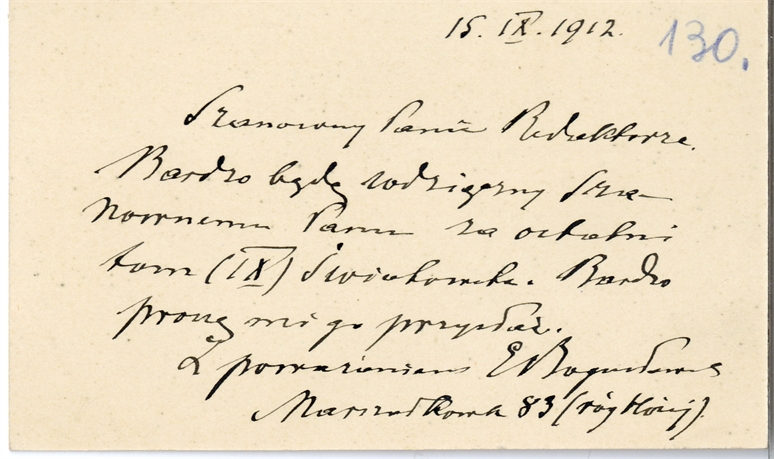 15. IX. 1912.
130.
Szanowny Panie Redaktorze.
Bardzo będę wdzięczny Sza-
nownemu Panu za ostatni
tom (IX) Światowita. Bardzo
proszę mi go przysłać.
Z poważaniem E Bogusławski
Marszałkowska 83 (róg Hożej).